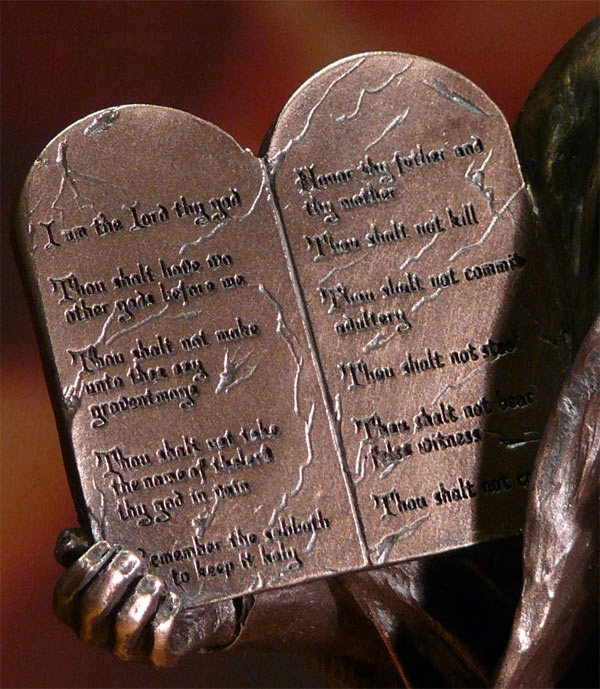 I am the Lord thy god
Thou shalt have no
other gods before me
Thou shalt not make
unto thee any
gravent
Thou shalt not take
the name of the
thy god in vain
emember the sabboth
to keep it holy
Honor thy father and
thy mother
Thou shalt not kill
Thou shalt not commit
adultery
Thou shalt not steal
Thou shalt not bear
false witness
Thou shalt not